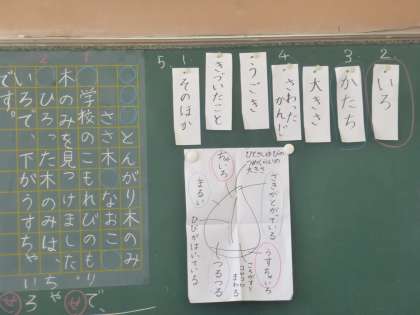 2.
いろ
3.
かたち
大きさ
4.
さわった
かんじ
うごき
きづいたこと
1
そのほか
5.
とんがり木のみ
ささ木 なおこ
学校のこもれびのもりで、
木のみを見つけました。
ひろった木のみは、ちゃ
いろで、下がうすちゃいろ
です。
つめくらいの
大きさ
さきがとがっている
ちゃいろ
まるい
うすちゃいろ
ころがすと
まわる
つるつる
ひびがはいっている